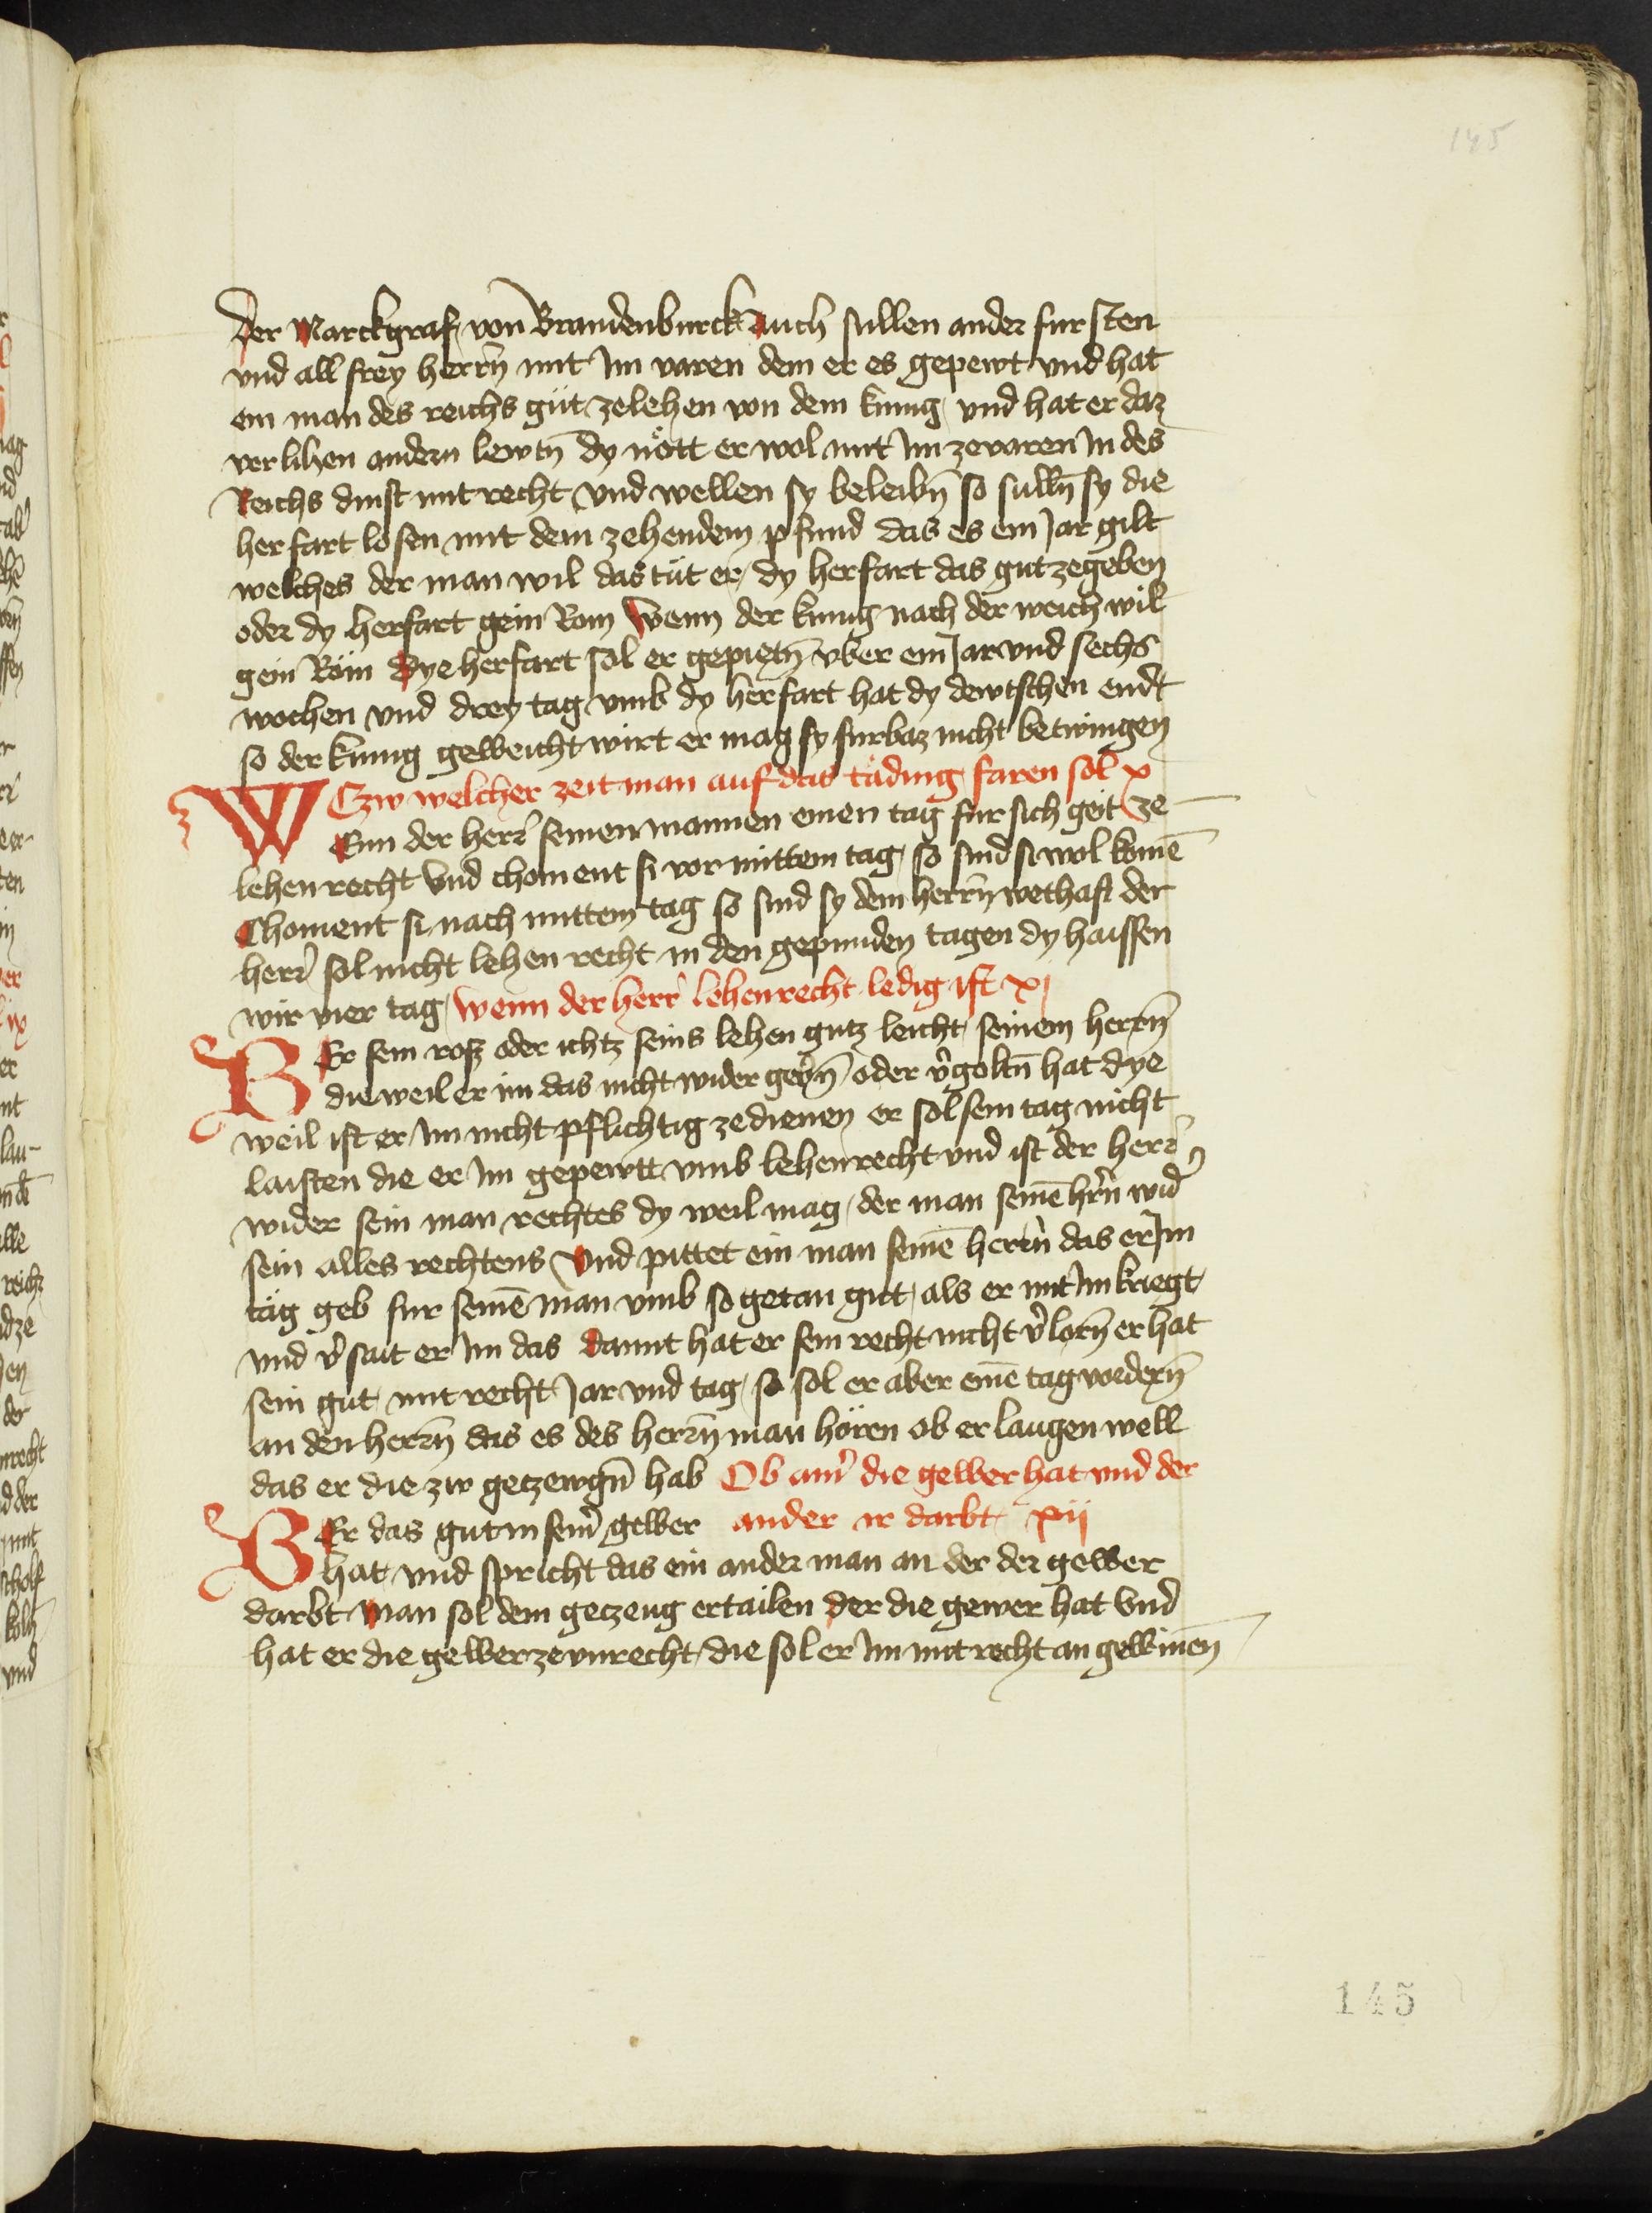 145
der Marckgraf von Brandenburck Auch sullen ander fursten
vnd all frey herrn̄ mit Im varen dem er es gepewt vnd hat
ein man des reichs güt zelehen von dem kunig vnd hat er daz
verlihen andern lewtn̄ dy nött er wol mit Im zevaren In des
Reichs dinst mit recht vnd wellen sy beleibn̄ so sulln̄ sy die
herfart losen mit dem zehendem pfund das es ein Jar gilt
welches der man wil das tüt er dy herfart das gut zegeben
oder dy herfart gein Rom Wenn der kunig nach der weich wil
gein Röm Dye herfart sol er gepietn̄ vber ein Jar vnd sechs
wochen vnd drey tag vmb dy herfart hat dy dewtschen endt
so der kunig geweicht wirt er mag sy furbaz nicht betwingen
Czw welcher zeit man auf das täding faren sol x
WEnn der herr̉ seinen mannen einen tag fur sich geit ze
lehenrecht Vnd choment si vor mittem tag so sind si wol komē
Choment si nach mittem tag so sind sy dem herrn̄ wethaft der
herr̉ sol nicht lehen recht in den gepunden tagen dy haissen
wir vier tag Wenn der herr̉ lehenrecht ledig ist xi
WEr sein rosz oder ichtz seins lehen gutz leicht seinem herrn̄
die weil er im das nicht wider gebn̄ oder v̉goltn̄ hat dye
weil ist er Im nicht pflichtig zedienen er sol sein tag nicht
laisten die er Im gepewtt vmb lehenrecht vnd ist der herr̉
wider sein man rechtes dy weil mag der man seinē hr̄n wid̉
sein alles rechtens Vnd pittet ein man seinē herrn̄ das er Im
täg geb fur seinē man vmb so getan gut als er mit Im kriegt
vnd v̉sait er Im das damit hat er sein recht nicht v̉lorn̄ er hat
sein gut mit recht Jar vnd tag so sol er aber einē tag vordern̄
an den herrn̄ das es des herrn̄ man hören ob er laugen well
das er die zw getzewgn̄ hab Ob ain̉ die gewer hat vnd der
WEr das gut in sein̉ gewer ander ir darbt xii
hat vnd spricht das ein ander man an der der gewer
darbt Man sol dem getzeug ertailen der die gewer hat Vnd
hat er die gewer ze vnrecht die sol er Im mit recht an gewinnen̄
145